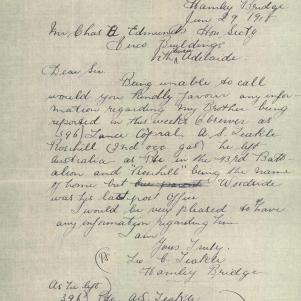 Hamley Bridge
Jun 29 1918
Mr. Chas A. Edmunds Hon Secty
Buildings
Nth Adelaide
Dear Sir.
Being unable to call
would you kindly favour any infor
mation regarding my Brother being
reported in this weeks Observer as
396 Lance Corpral A. S. Teakle
Rosehill (2nd occ gas) he left
Australia as Pte in the 43rd Batt-
alion and "Rosehill" being the name
of home but Woodside
was his last post office
I would be very pleased to have
any information regarding him
I am
Yours Truly.
Leo C. Teakle
Hamley Bridge
As he left
396 Pte A. S. Teakle